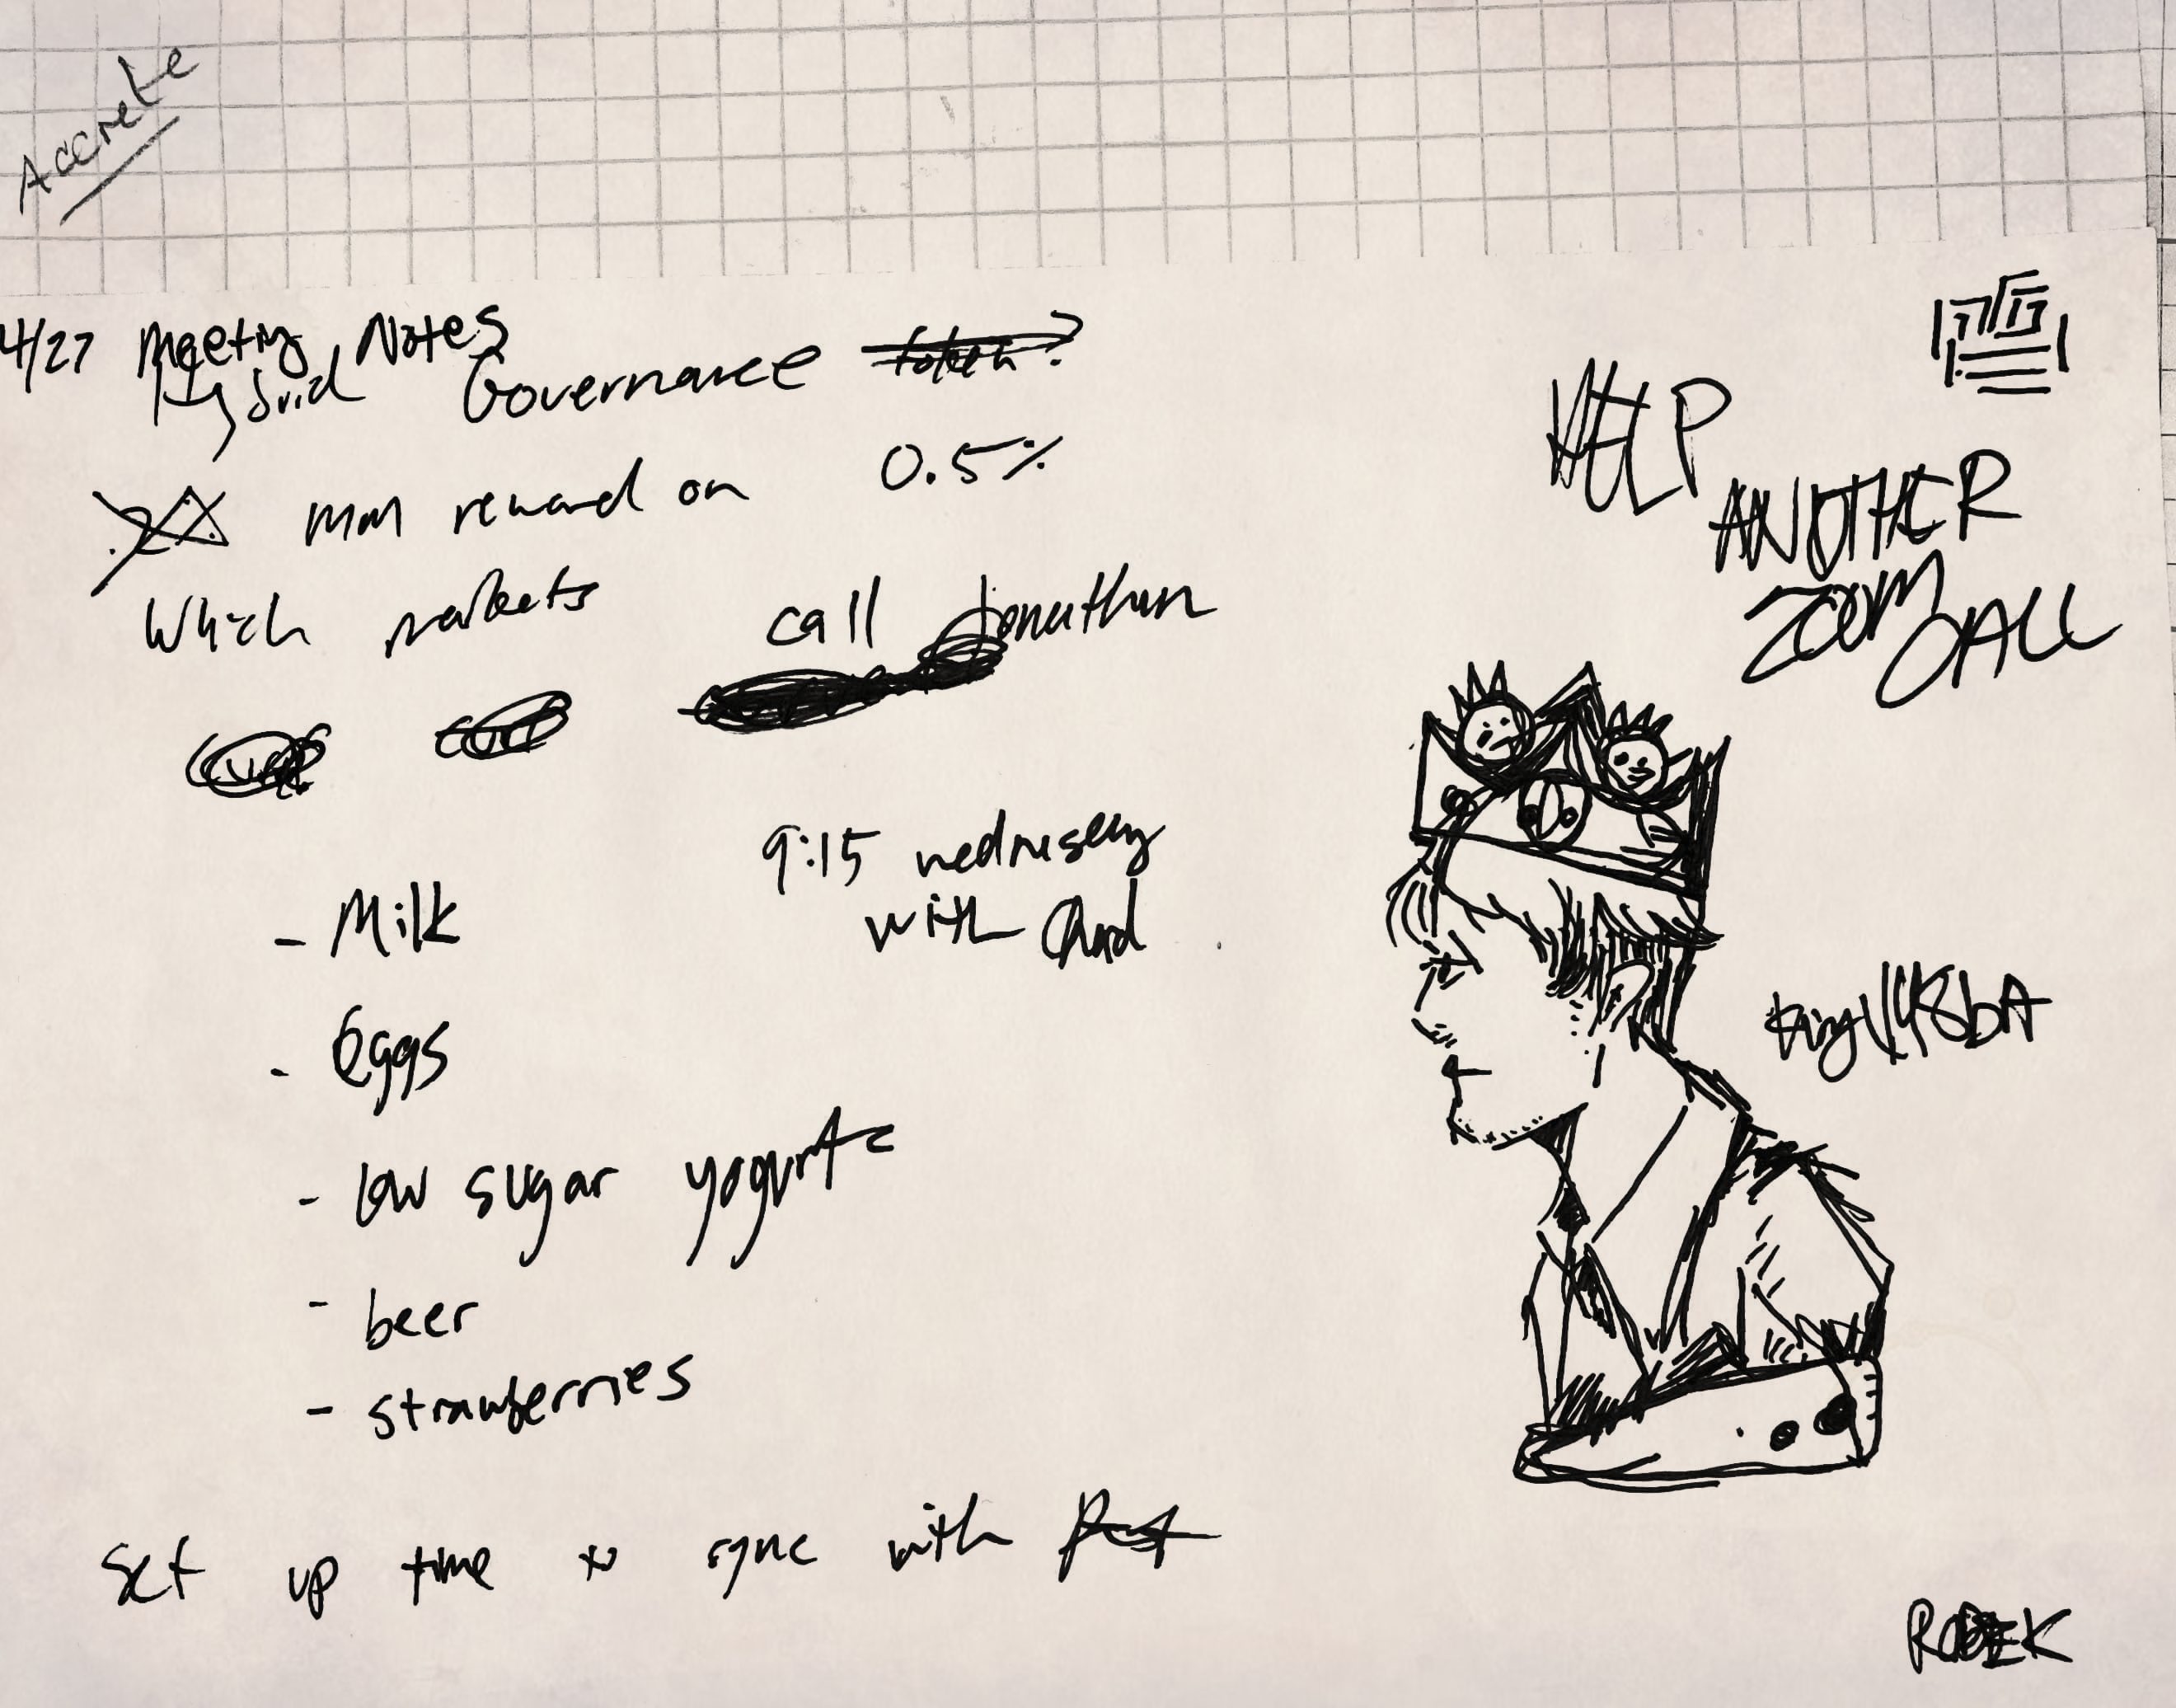 Accrete
4/27 Meeting Notes
Hybrid Governance token?
mm reward on 0.5%
Which markets
call Jonathan
9:15 wednesday
with Chad
- Milk
- Eggs
- low sugar yogurt
- beer
- strawberries
Set up time to sync with
HELP
ANOTHER
ZOOM CALL